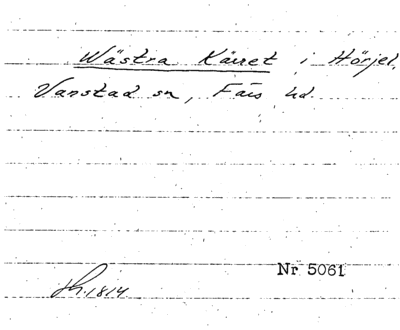 Wästra Kärret i Hörjel.
Vanstad sn, Färs hd.
Nr 5061
Sk. 1814